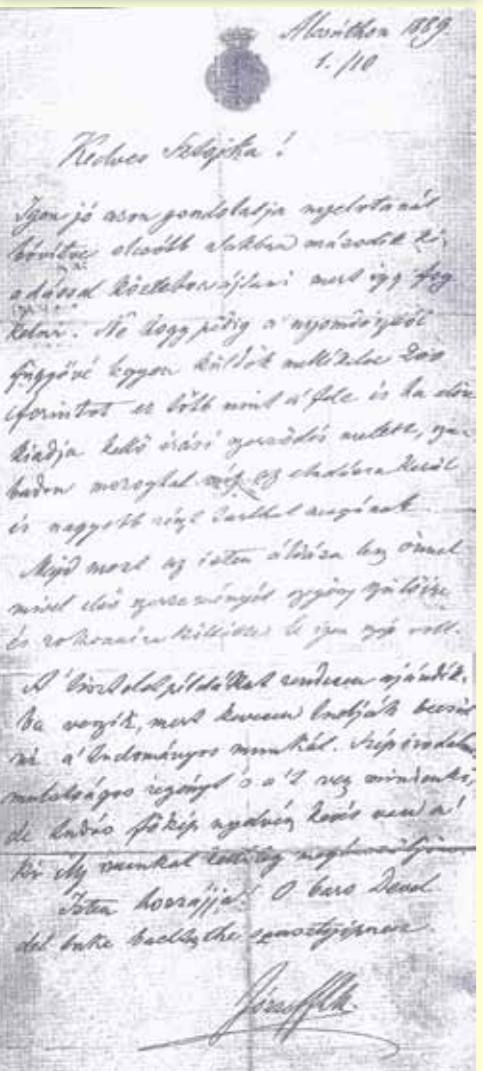 Alcsúthon 1889
1./10
Kedves Sztojka!
Igen jó azon gondolatja nyelvtanát
bővítve olcsóbb alakban második ki-
adással közrebocsájtani mert így fog
kelni. No hogy pedig a' nyomdásztól
függővé legyen küldök mellékelve 200
forintot ez több mint a' fele és ha
kiadja kellő írási szerződés mellett,
maroztat még az eladásra kerül
és nagyobb részt tarthat magának
Majd most az isten áldása lesz önnel
mivel első szerzeményét szegény szüleire
és rokonaira költötte; ez igen szép volt.
A' tiszteletpéldákat rendesen ajándék-
ba veszik, mert kevesen tudják becsül-
ni a' tudományos munkát. Szépirodalmi
mulatságos regényt ó a'zt vesz mindenki,
de tudós főkép nyelvész kevés van a'
ki ily munkát kellőleg megbecsüljön
Isten hozzájja! O baro Devel
del tuke baclı the
József